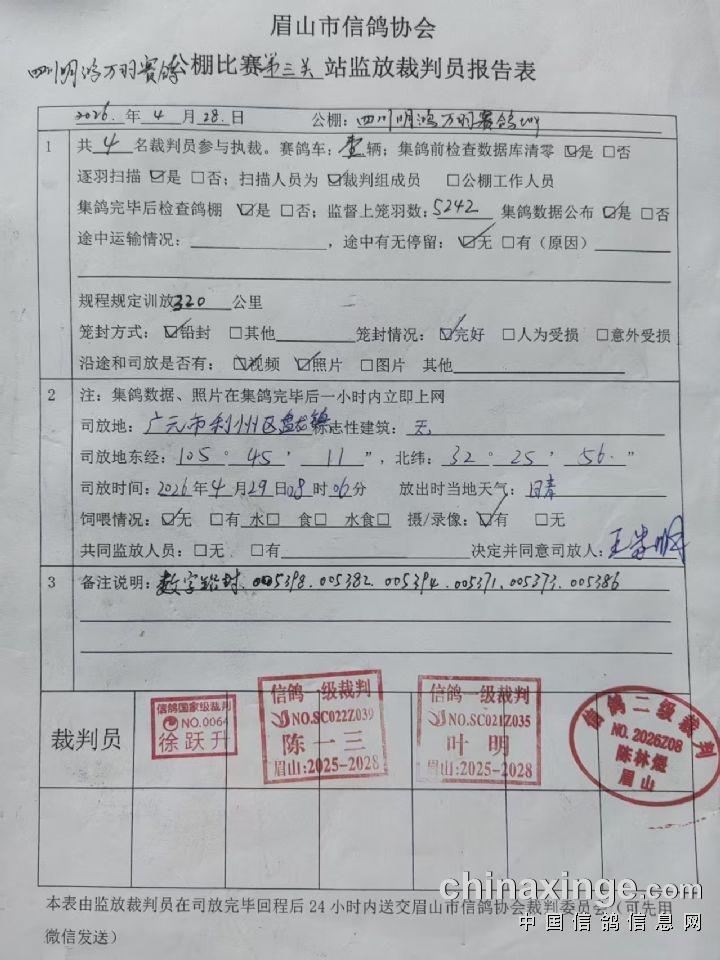 眉山市信鸽协会
四川明鸿万羽赛鸽公棚比赛第三关站监放裁判员报告表
2026.年4月28.日 公棚：四川明鸿万羽赛鸽
1 共4名裁判员参与执裁。赛鸽车：壹辆；集鸽前检查数据库清零 ☑是 □否
逐羽扫描 ☑是 □否；扫描人员为 ☑裁判组成员 □公棚工作人员
集鸽完毕后检查鸽棚 ☑是 □否；监督上笼羽数：5242 集鸽数据公布 ☑是 □否
途中运输情况：________，途中有无停留：☑无 □有（原因）________
规程规定训放320公里
笼封方式：☑铅封 □其他________ 笼封情况：☑完好 □人为受损 □意外受损
沿途和司放是否有：☑视频 ☑照片 □图片 其他________
2 注：集鸽数据、照片在集鸽完毕后一小时内立即上网
司放地：广元市利州区盘龙镇标志性建筑：无
司放地东经：105°45′11″，北纬：32°25′56.″
司放时间：2026年4月29日08时06分 放出时当地天气：晴
饲喂情况：☑无 □有 水□ 食□ 水食□ 摄/录像：☑有 □无
共同监放人员：□无 □有________决定并同意司放人：
3 备注说明：数字铅封.005398.005382.005394.005371.005373.005386
裁判员
信鸽国家级裁判
NO.0064
徐跃升
信鸽一级裁判
NO.SC022Z039
陈一三
眉山:2025-2028
信鸽一级裁判
NO.SC021Z035
叶明
眉山:2025-2028
信鸽二级裁判
NO.2026Z08
陈林煜
眉山
本表由监放裁判员在司放完毕回程后24小时内送交眉山市信鸽协会裁判委员会（可先用
微信发送）
chinaxinge.com
中国信鸽信息网